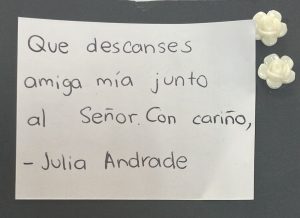 Que descanses
amiga mía junto
al Señor. Con cariño,
- Julia Andrade